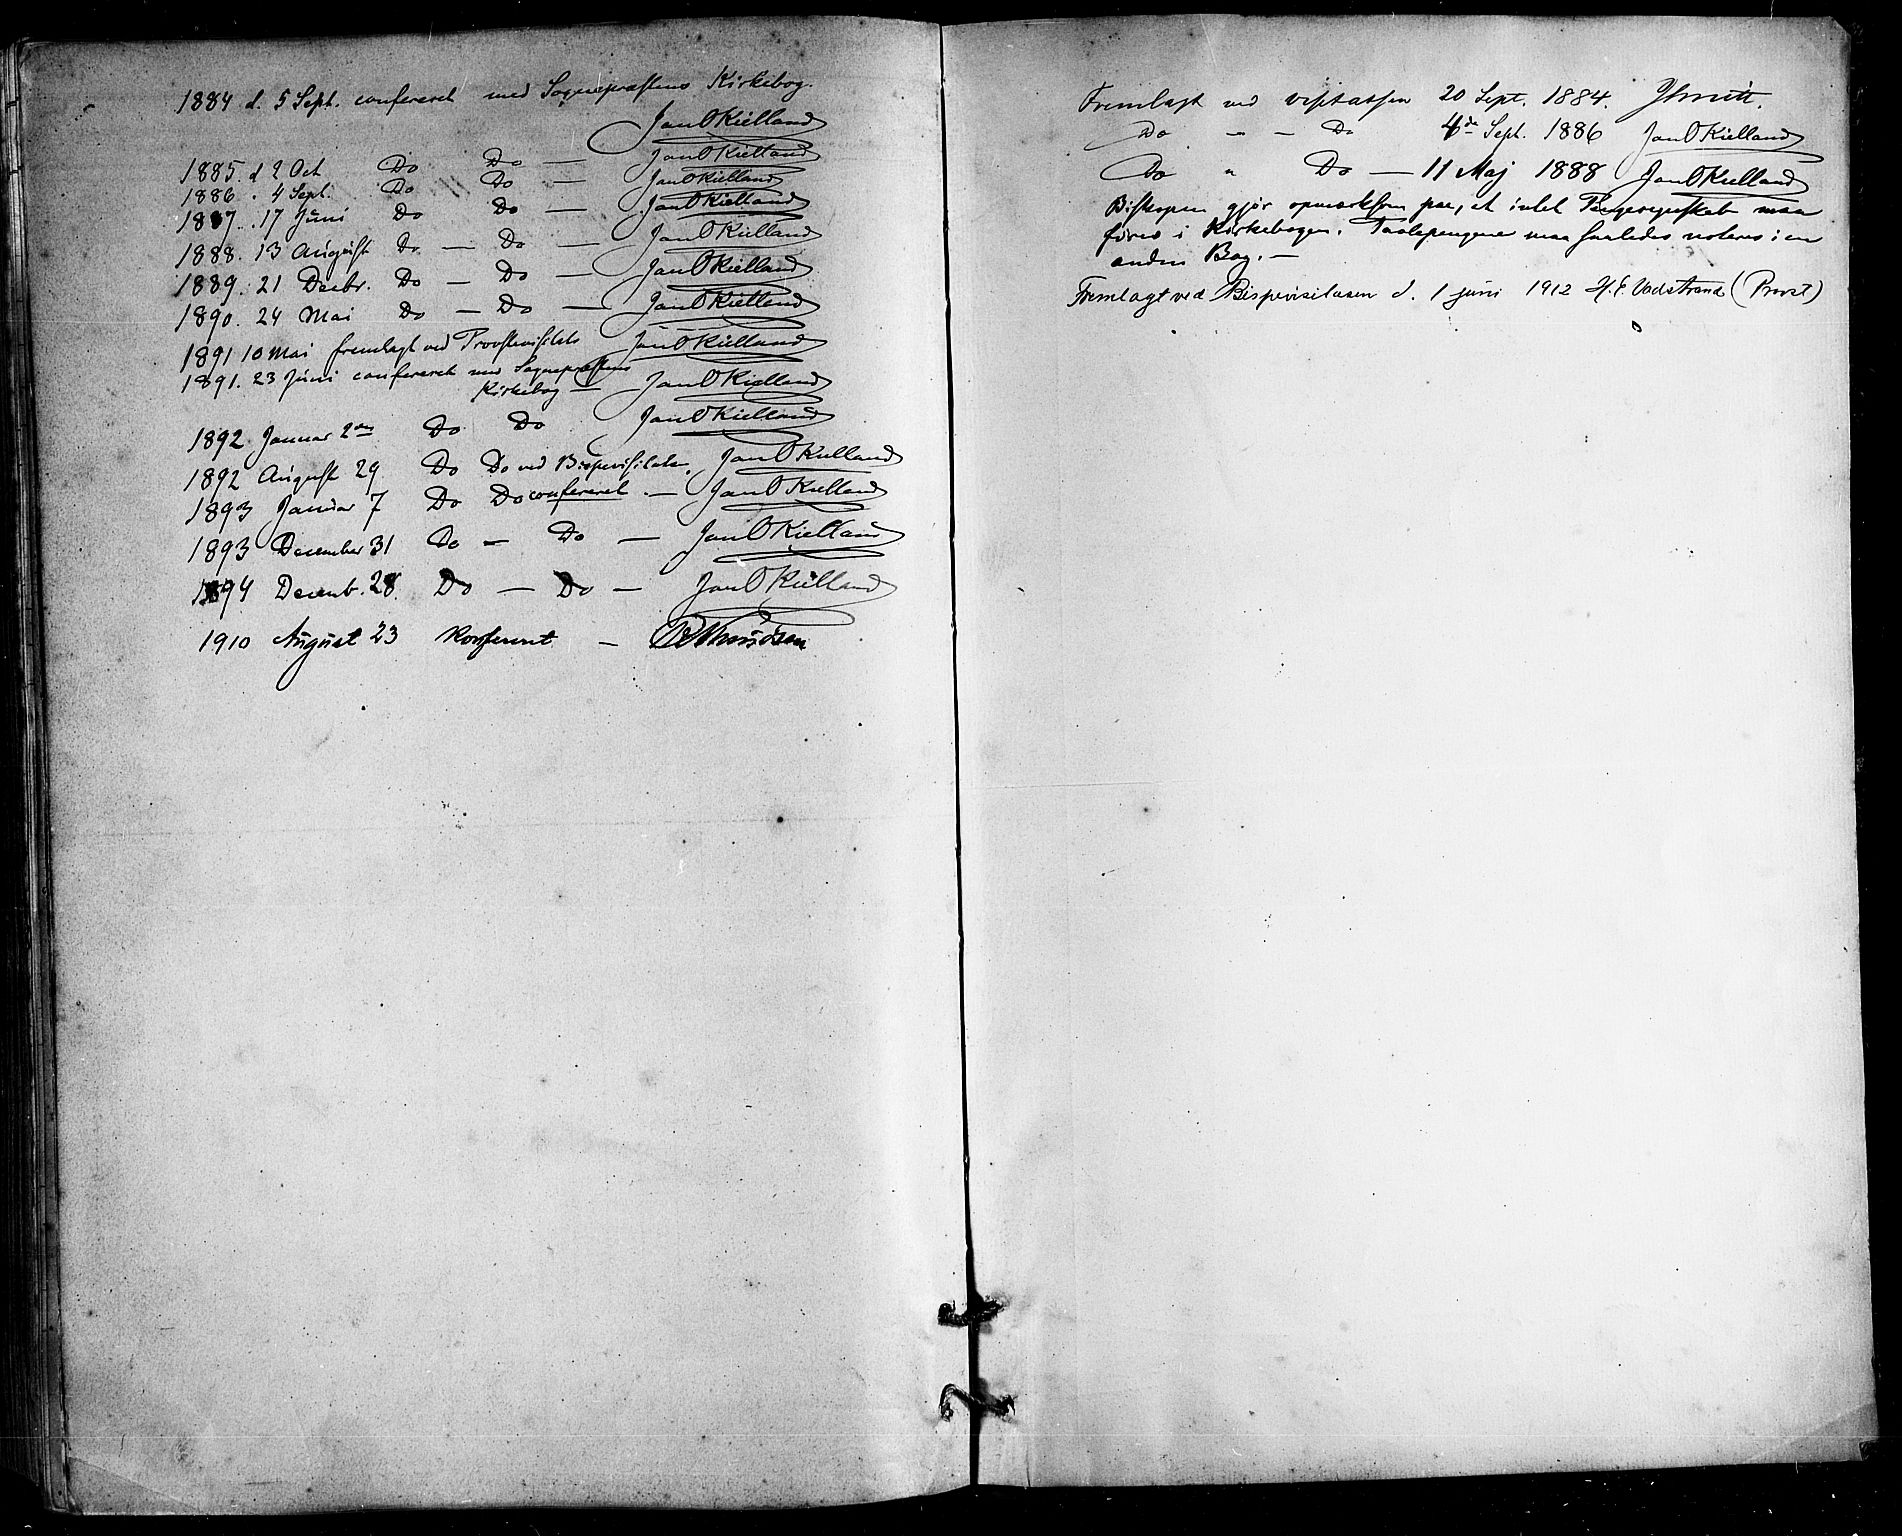 1884 d. 5 Sept. confereret med Sognepræstens Kirkebog.
Jan O Kielland
1885. d 2 Oct Do Do — Jan O Kielland
1886. 4 Sept. Do Do — Jan O Kielland
1887. 17 Juni Do Do — Jan O Kielland
1888. 13 August Do — Do — Jan O Kielland
1889. 21 Decbr. Do — Do — Jan O Kielland
1890. 24 Mai Do — Do — Jan O Kielland
1891 10 Mai fremlagt ved Provstevisitats Jan O Kielland
1891. 23 Juni confereret med Sognepræstens
Kirkebog — Jan O Kielland
1892 Januar 2den Do Do Jan O Kielland
1892 August 29 Do Do ved Bispevisitatsen. Jan O Kielland
1893 Januar 7 Do Do confereret — Jan O Kielland
1893 December 31 Do — Do — Jan O Kielland
1894 Decemb. 28. Do — Do — Jan O Kielland
1910 August 23 Konfereret —
Fremlagt ved visitatsen 20 Sept. 1884.
Do " — Do 4de Sept. 1886 Jan O Kielland
Do " Do — 11 Maj 1888 Jan O Kielland
Biskopen gjør opmærksom paa, at intet Pengeregnskab maa
føres i Kirkebogen. maa saaledes noteres i en
anden Bog. —
Fremlagt ved Bispevisitasen d. 1 juni 1912 Vadstrand (Provst)